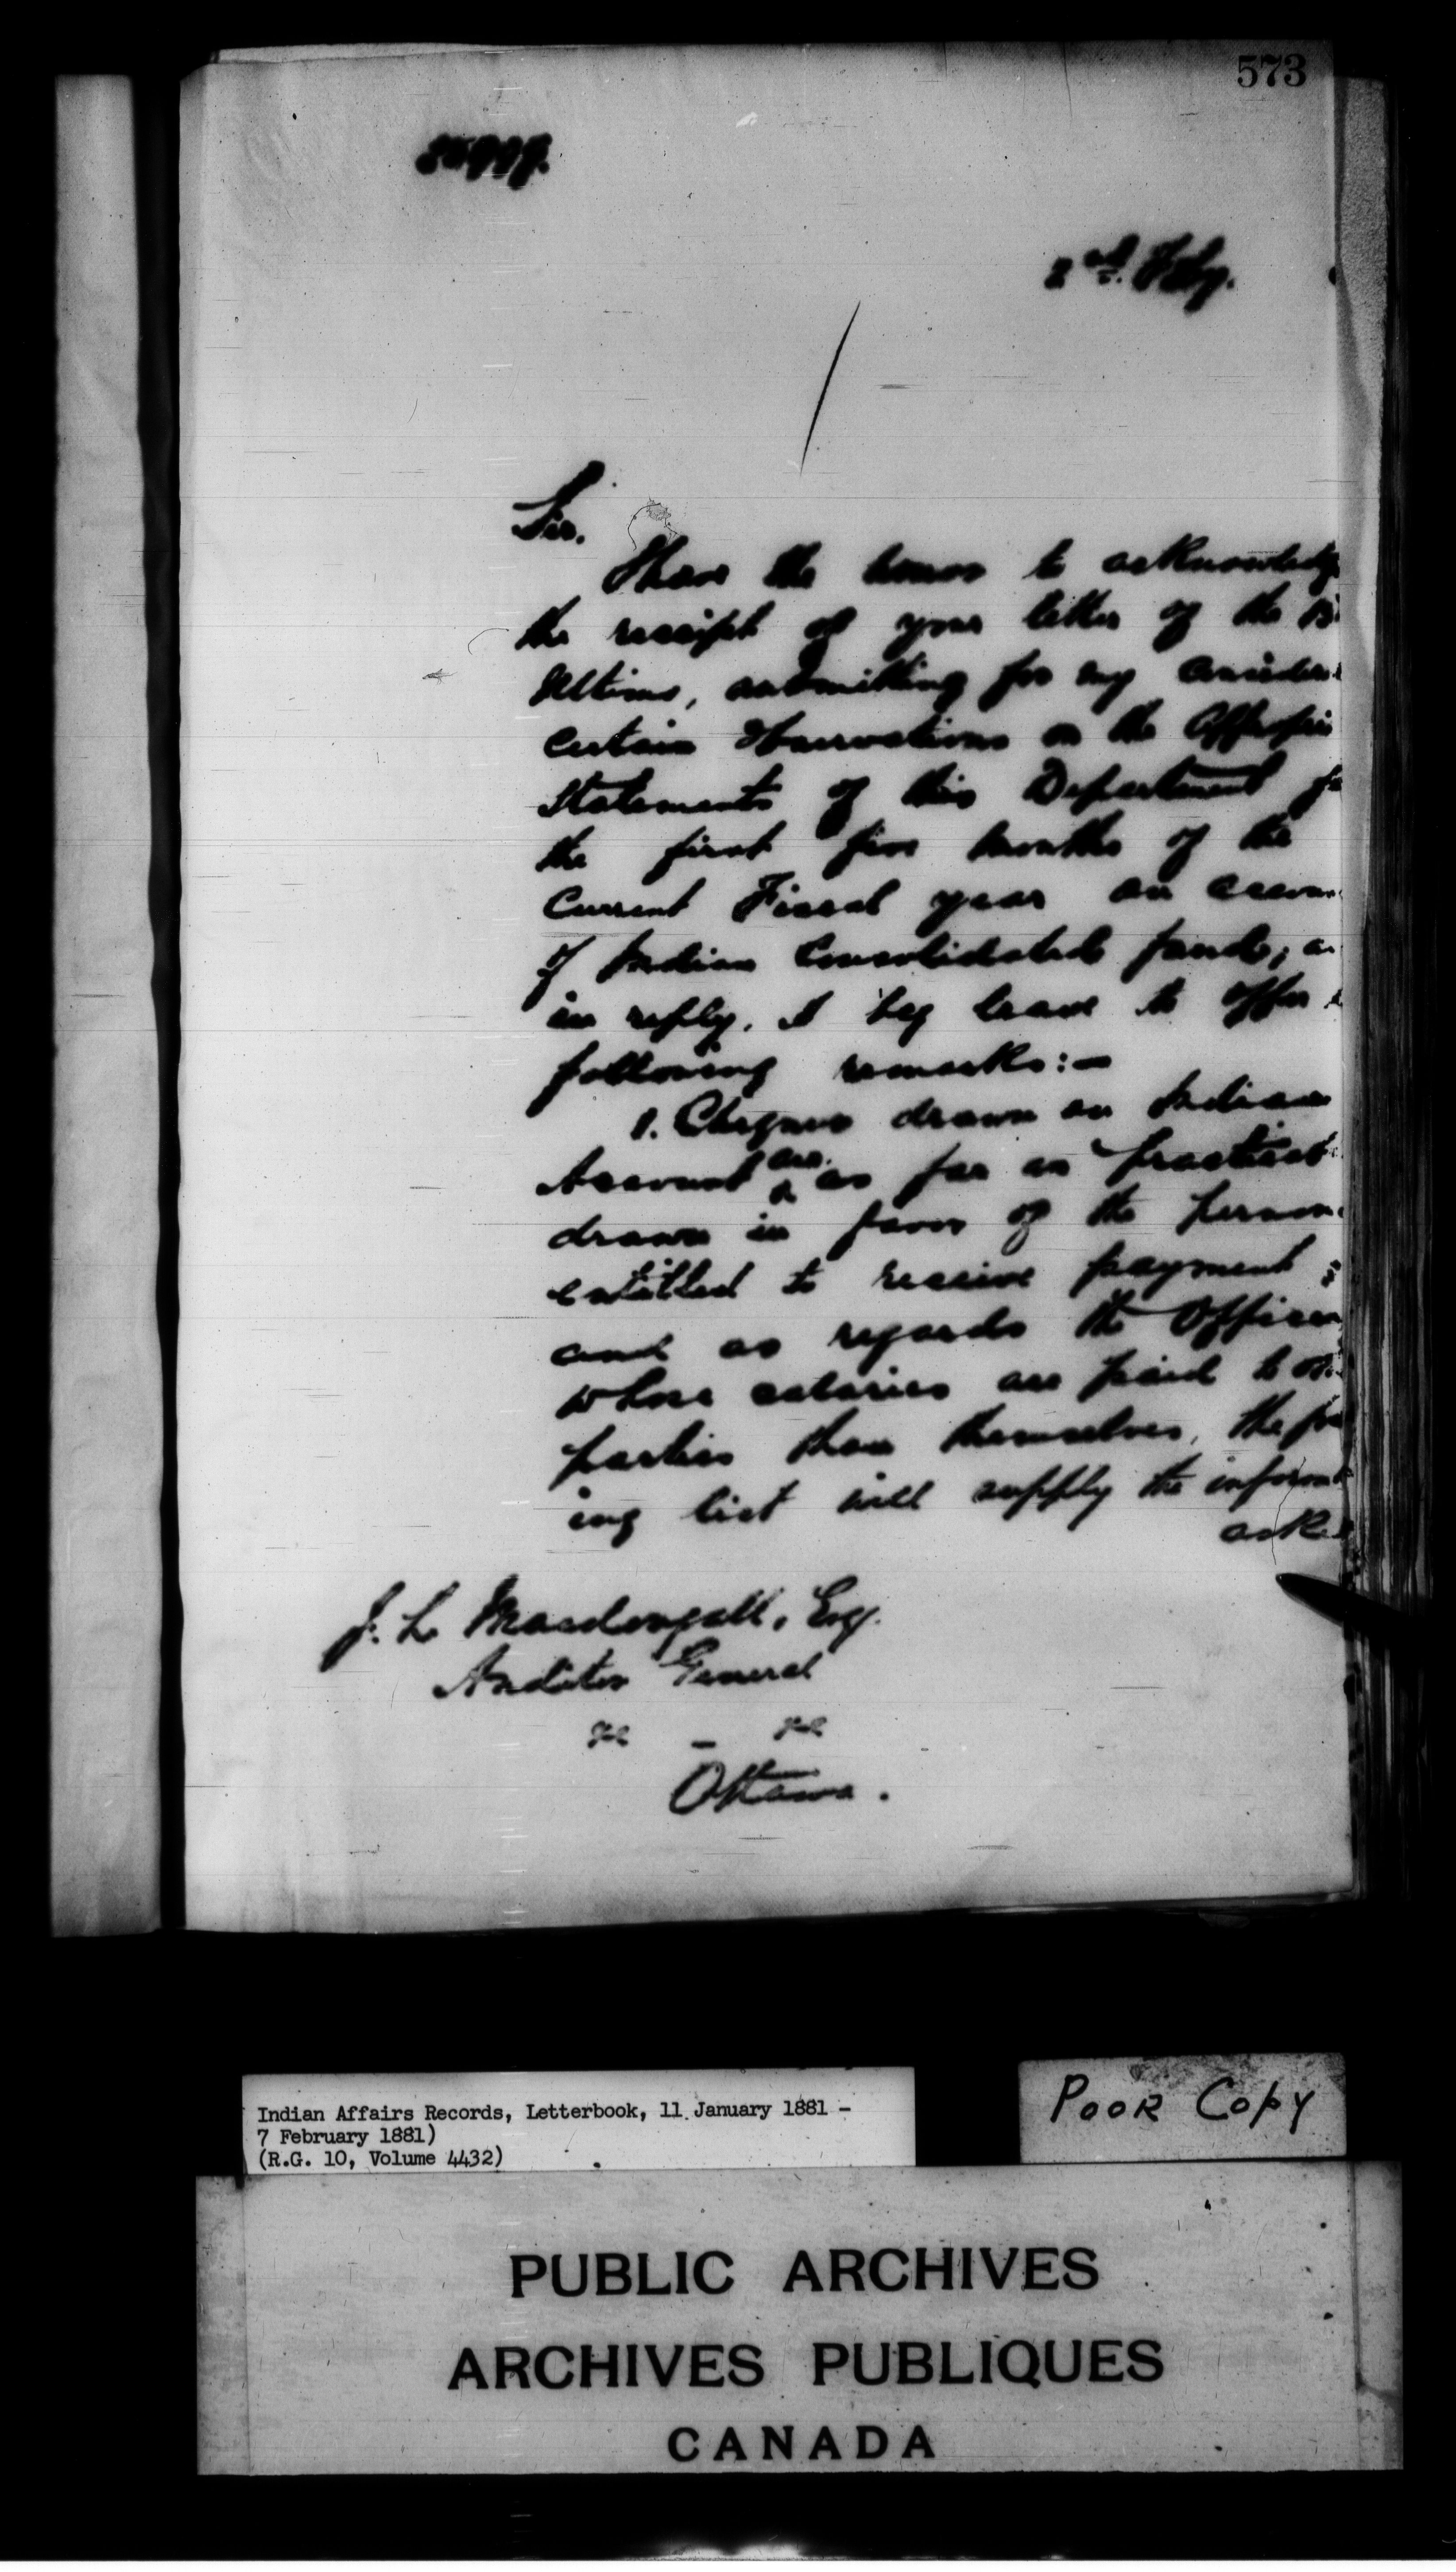 573
2nd. Feby.
Sir.
I have the honor to acknowledge
the receipt of your letter of the
Ultimo, submitting for my consider
certain observations on the Appropri
Statements of this Department fo
the first five months of the
Current Fiscal year on accou
of Indian Consolidated fund; a
in reply, I beg leave to offer
following remarks:-
1. Cheques drawn on Indian
Account are as far as practical
drawn in favor of the person
entitled to receive payment;
and as regards the Officer
whose salaries are paid to
parties than themselves, the
ing list will supply the informat
aske
J. L. Macdougall, Esq.
Auditor General
&c - &c
Ottawa.
Indian Affairs Records, Letterbook, 11 January 1881 -
7 February 1881)
(R.G. 10, Volume 4432)
POOR COPY
PUBLIC ARCHIVES
ARCHIVES PUBLIQUES
CANADA